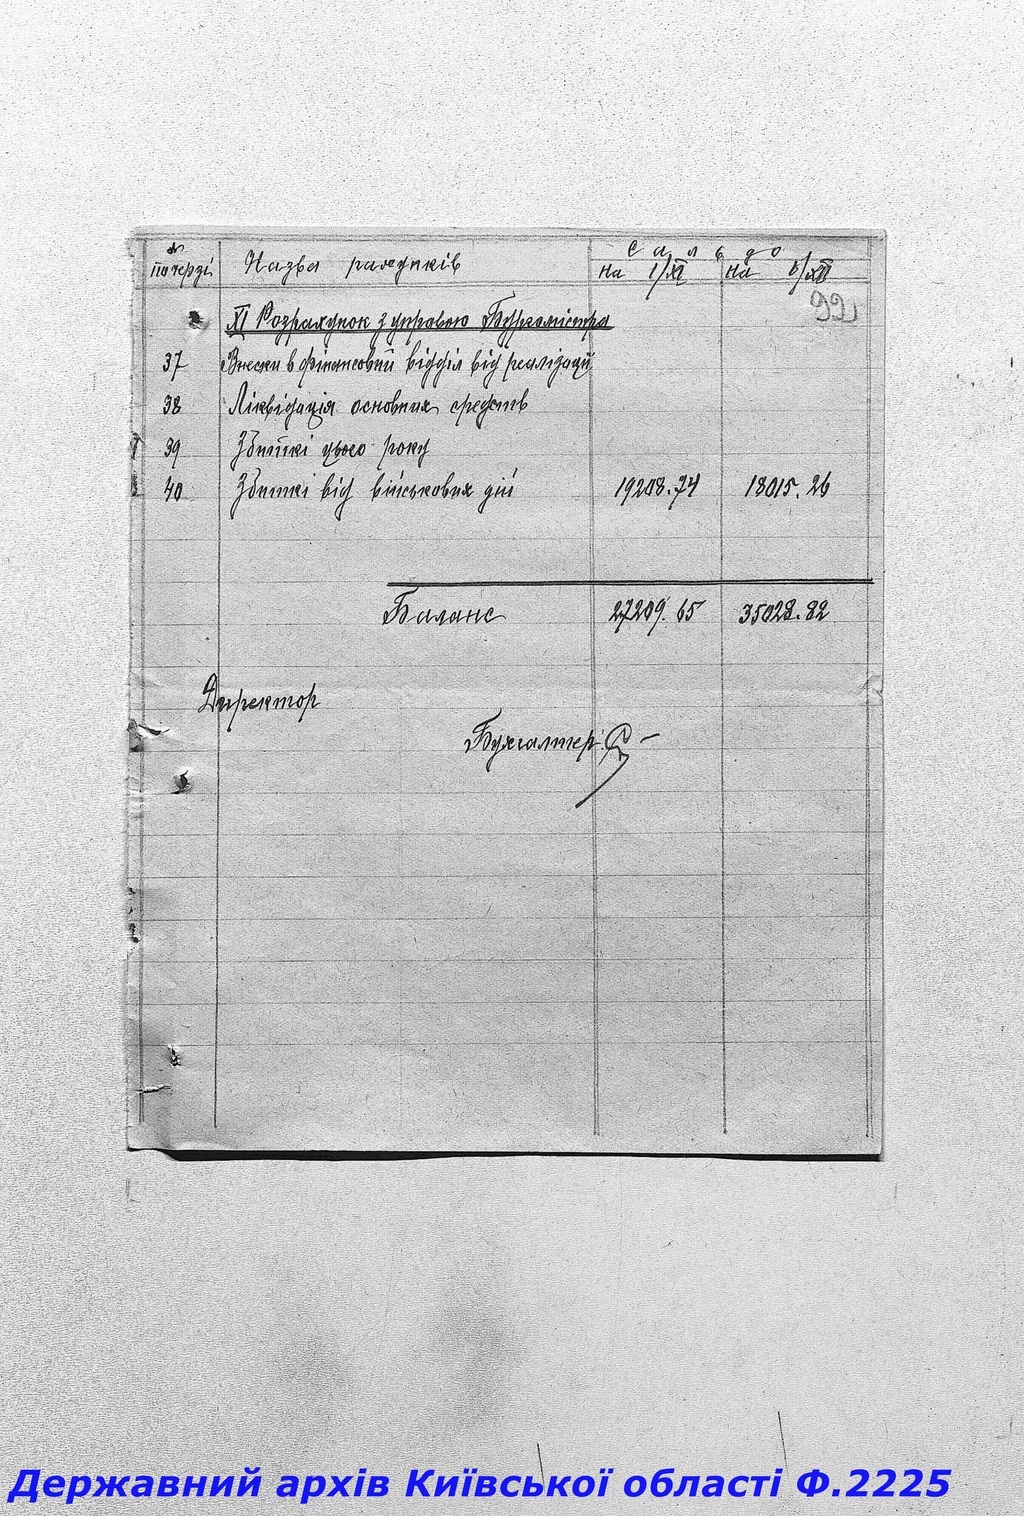 № по черзі Назва рахунків Сальдо
на 1/XI на 1/XII
99
XI Розрахунок з управою Бургомістра
37 Внески в фінансовий відділ від реалізації
38 Ліквідація основних средств
39 Збитки цього року
40 Збиткі від військових дій 19208.74 18015.26
Баланс 27209.65 35028.82
Директор
Бухгалтер
Державний архів Київської області Ф.2225